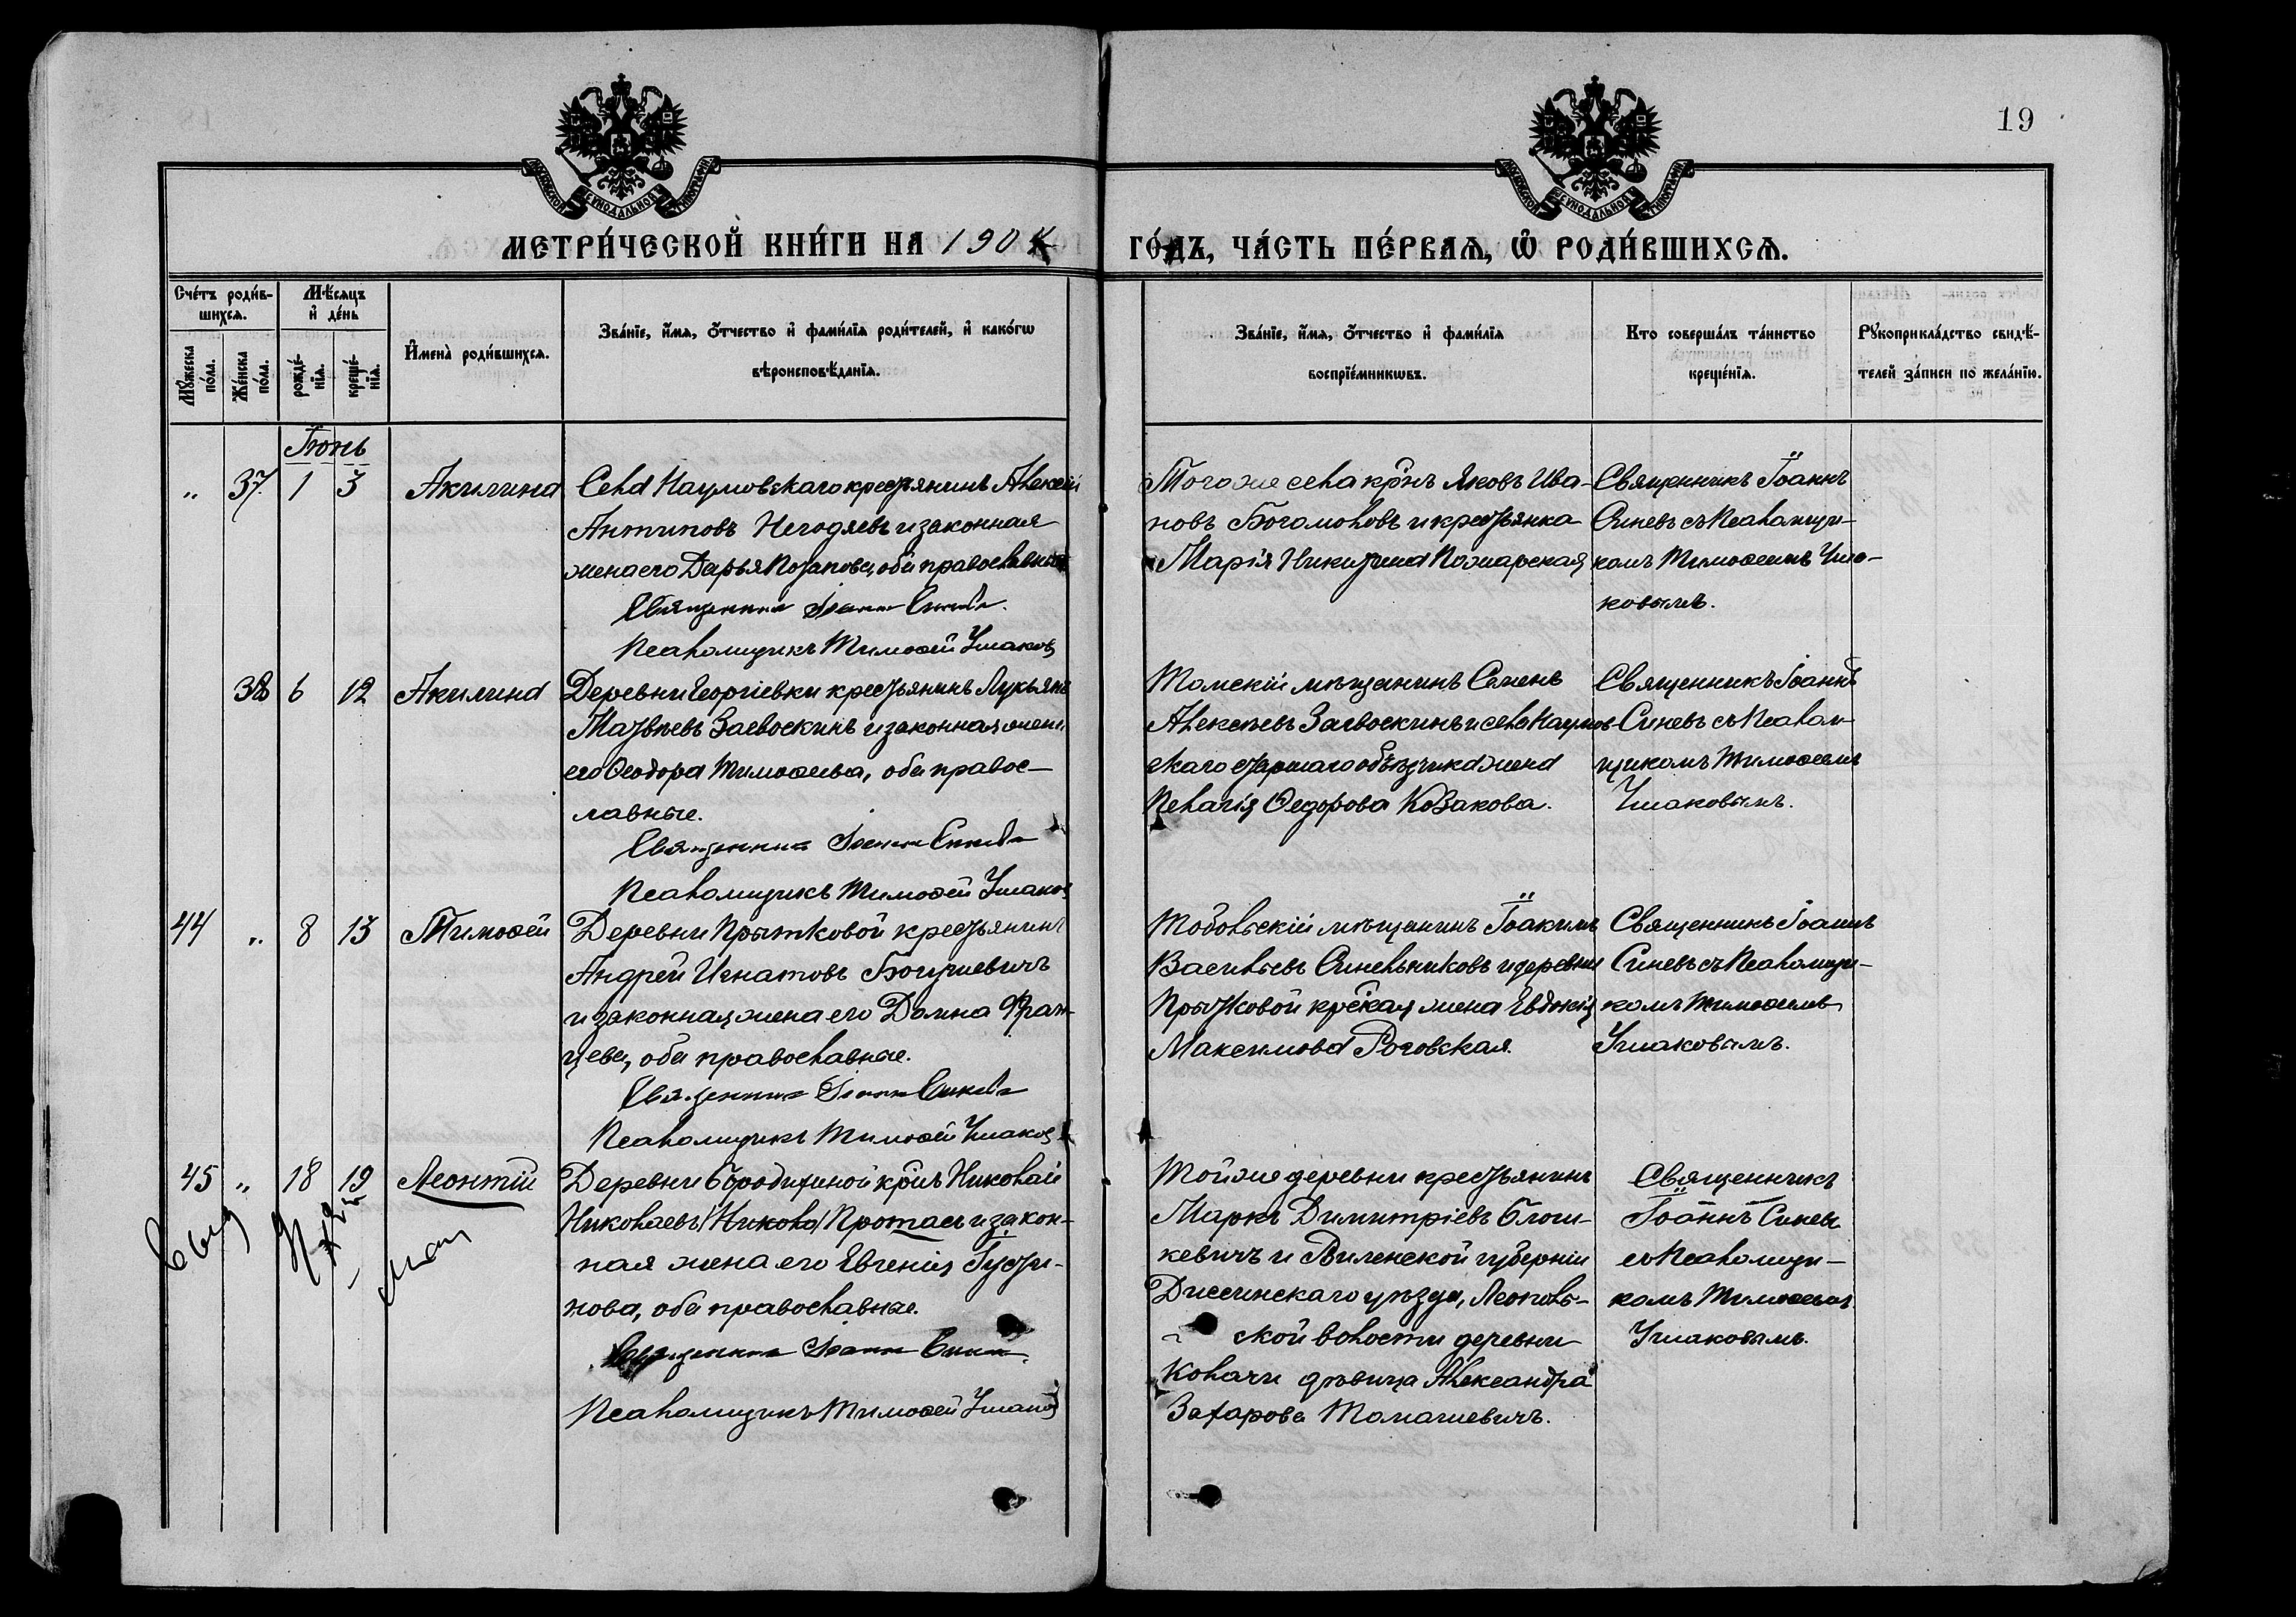 19
МОСКОВСКОЙ СѴНОДАЛЬНОЙ ТИПОГРАФІИ
МОСКОВСКОЙ СѴНОДАЛЬНОЙ ТИПОГРАФІИ
МЕТРИ́ЧЕСКОЙ КНИ́ГИ НА 1904 ГО́ДЪ, ЧА́СТЬ ПЕ́РВАѦ, Ѡ҆ РОДИ́ВШИХСѦ.
Сче́тъ роди́в-
шихсѧ.
Мѣ́сѧцъ
и҆ де́нь
Мꙋ́жеска
по́ла.
Же́нска
по́ла.
рожде́-
нїѧ.
креще́-
нїѧ.
И҆мена̀ роди́вшихсѧ.
Зва́нїе, и҆́мѧ, ѻ҆́тчество и҆ фами́лїѧ роди́телей, и҆ како́гѡ
вѣроисповѣ́данїѧ.
Зва́нїе, и҆́мѧ, ѻ҆́тчество и҆ фами́лїѧ
воспрїе́мникѡвъ.
Кто соверша́лъ та́инство
креще́нїѧ.
Рꙋкоприкла́дство свидѣ́-
телей за́писи по жела́нїю.
Іюнь
„ 37. 1 3 Акилина
Села Наумовскаго крестьянинъ Алексѣй
Антиповъ Негодяевъ и законная
жена его Дарья Потапова, оба православные
Священникъ Іоаннъ Синевъ.
Псаломщикъ Тимоѳей Ушаковъ
Того же села кр̃нъ Яковъ Ива-
новъ Богомоловъ и крестьянка
Марія Никитина Пожарская
Священникъ Іоаннъ
Синевъ съ Псаломщи-
комъ Тимоѳеемъ Уша-
ковымъ.
38 6 12 Акилина
Деревни Георгіевки крестьянинъ Лукьянъ
Матвѣевъ Заевоскинъ и законная жена
его Ѳеодора Тимоѳеева, оба правос-
лавные.
Священникъ Іоаннъ Синевъ
Псаломщикъ Тимоѳей Ушаковъ
Томскій мѣщанинъ Семенъ
Алексѣевъ Заевоскинъ и села Наумов-
скаго старшаго объѣздчика жена
Пелагія Ѳедорова Козакова.
Священникъ Іоаннъ
Синевъ съ Псалом-
щикомъ Тимоѳеемъ
Ушаковымъ.
44 „ 8 13 Тимоѳей
Деревни Прытковой крестьянинъ
Андрей Игнатовъ Богушевичъ
и законная жена его Домна Фран-
цева, оба православные.
Священникъ Іоаннъ Синевъ
Псаломщикъ Тимоѳей Ушаковъ
Тобольскій мѣщанинъ Іоакимъ
Васильевъ Синельниковъ и деревни
Прытковой кр̃ская жена Евдокія
Максимова Роговская.
Священникъ Іоаннъ
Синевъ съ Псаломщи-
комъ Тимоѳеемъ
Ушаковымъ.
45 „ 18 19 Леонтій
Деревни Бородихиной кр̃нъ Николай
Николаевъ /Никола/ Протасъ и закон-
ная жена его Евгенія Густи-
нова, оба православные.
Священникъ Іоаннъ Синевъ.
Псаломщикъ Тимоѳей Ушаковъ
Той же деревни крестьянинъ
Маркъ Димитріевъ Блош-
кевичъ и Виленской губерніи
Диссинскаго уѣзда, Леополь-
ской волости деревни
Ковачи дѣвица Александра
Захарова Томашевичъ.
Священникъ
Іоаннъ Синевъ
съ Псаломщи-
комъ Тимоѳеемъ
Ушаковымъ.